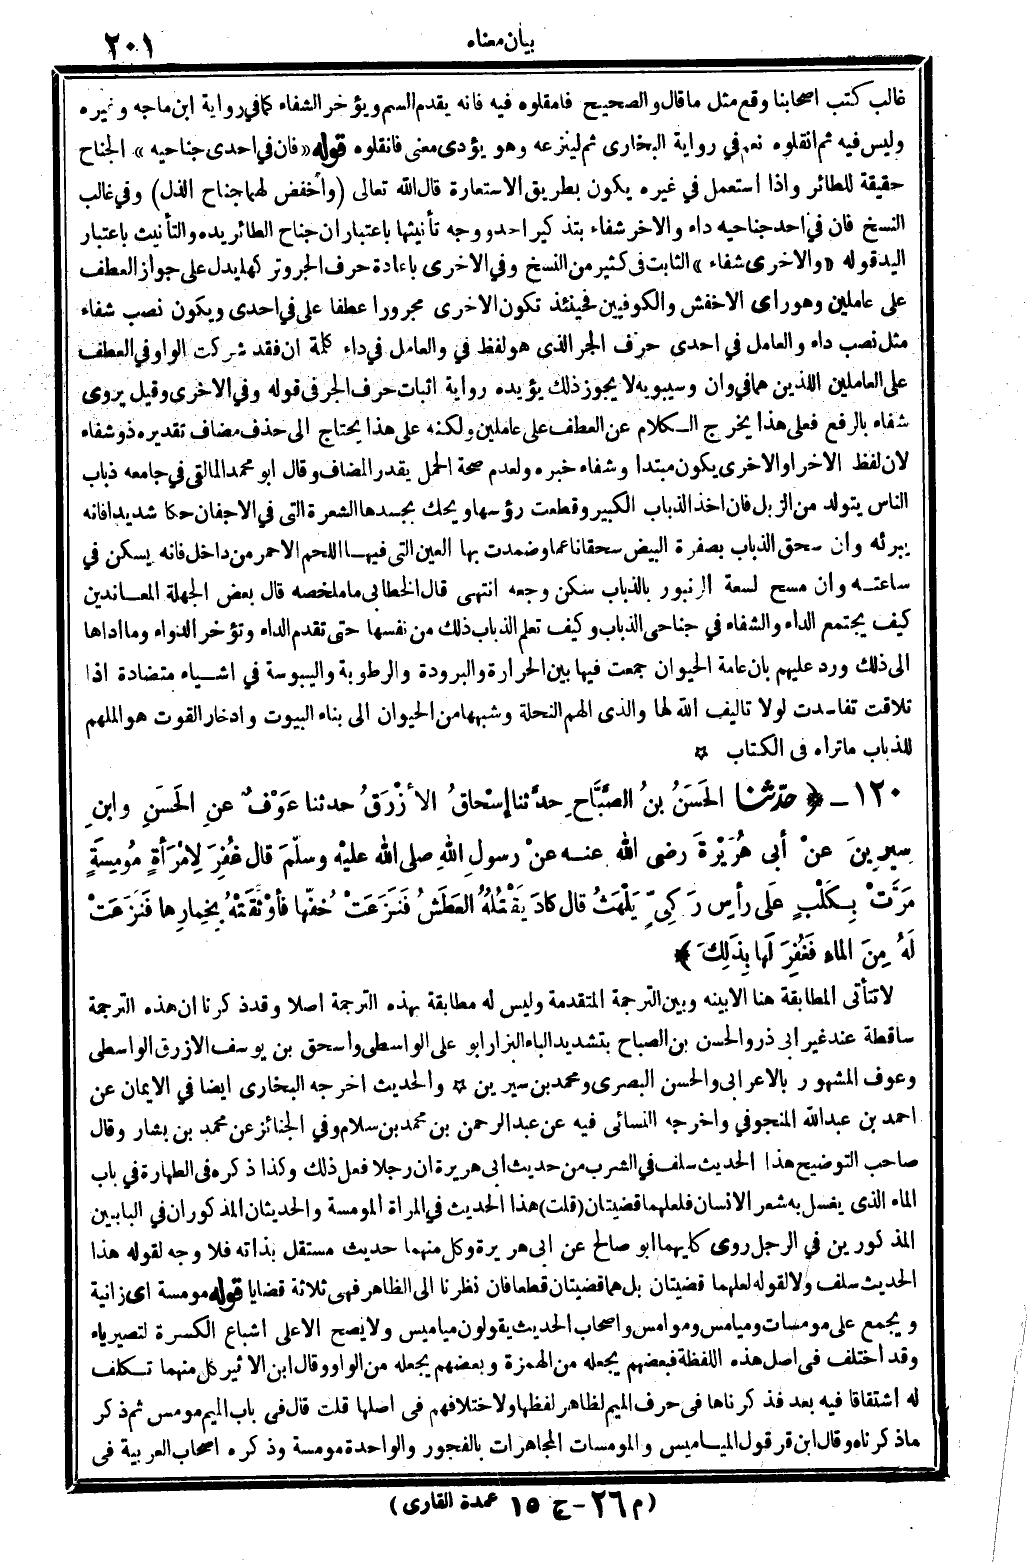 ٢٠١
بيان معناه
غالب كتب اصحابنا وقع مثل ما قال والصحيح فامقلوه فيه فانه يقدم السم ويؤخر الشفاء كما في رواية ابن ماجه وغيره
وليس فيه ثم انقلوه نعم في رواية البخارى ثم لينزعه وهو يؤدى معنى فانقلوه قوله «فان في احدى جناحيه» الجناح
حقيقة للطائر واذا استعمل في غيره يكون بطريق الاستعارة قال الله تعالى (واخفض لهما جناح الذل) وفي غالب
النسخ فان في احد جناحيه داء والاخر شفاء بتذكير احد ووجه تأنيثها باعتبار ان جناح الطائر يده والتأنيث باعتبار
اليد قوله «والاخرى شفاء» الثابت فى كثير من النسخ وفي الاخرى باعادة حرف الجر وتركها يدل على جواز العطف
على عاملين وهو راى الاخفش والكوفيين فحينئذ تكون الاخرى مجرورا عطفا على في احدى ويكون نصب شفاء
مثل نصب داء والعامل في احدى حرف الجر الذى هو لفظ في والعامل في داء كلمة ان فقد شركت الواو في العطف
على العاملين اللذين هما في وان وسيبويه لا يجوز ذلك يؤيده رواية اثبات حرف الجر فى قوله وفي الاخرى وقيل يروى
شفاء بالرفع فعلى هذا يخرج الكلام عن العطف على عاملين ولكنه على هذا يحتاج الى حذف مضاف تقديره ذو شفاء
لان لفظ الاخر او الاخرى يكون مبتدا وشفاء خبره ولعدم صحة الحمل يقدر المضاف وقال ابو محمد المالقى في جامعه ذباب
الناس يتولد من الزبل فان اخذ الذباب الكبير وقطعت رؤسها ويحك بجسدها الشعرة التى في الاجفان حكا شديدا فانه
يبرئه وان سحق الذباب بصفرة البيض سحقا ناعما وضمدت بها العين التى فيها اللحم الاحمر من داخل فانه يسكن في
ساعته وان مسح لسعة الزنبور بالذباب سكن وجعه انتهى قال الخطابى ما ملخصه قال بعض الجهلة المعاندين
كيف يجتمع الداء والشفاء في جناحى الذباب وكيف تعلم الذباب ذلك من نفسها حتى تقدم الداء وتؤخر الدواء وما اداها
الى ذلك ورد عليهم بان عامة الحيوان جمعت فيها بين الحرارة والبرودة والرطوبة واليبوسة في اشياء متضادة اذا
تلاقت تفاسدت لولا تاليف الله لها والذى الهم النحلة وشبهها من الحيوان الى بناء البيوت وادخار القوت هو الملهم
للذباب ماتراه فى الكتاب ✡
١٢٠ - ﴿ حَدَّثَنَا الحَسَنُ بنُ الصَّبَّاحِ حدَّثنا إسْحاقُ الأزْرَقُ حدثنا عَوْفٌ عنِ الحَسَنِ وابنِ
سِيرِينَ عنْ أبى هُرَيْرةَ رضى الله عنه عنْ رسولِ اللهِ صلى الله عليْه وسلَّمَ قال غُفِرَ لِامْرَأةٍ مُومِسَةٍ
مَرَّتْ بِكَلْبٍ عَلَى رأسِ رَكِىٍّ يَلْهَثُ قال كادَ يَقْتُلُهُ العَطَشُ فَنَزَعَتْ خُفَّها فأوْثَقَتْهُ بِخِمارِها فَنَزَعَتْ
لَهُ مِنَ الماءِ فَغُفِرَ لَها بِذَلِكَ ﴾
لا تتأتى المطابقة هنا الا بينه وبين الترجمة المتقدمة وليس له مطابقة بهذه الترجمة اصلا وقد ذكرنا ان هذه الترجمة
ساقطة عند غير ابى ذر والحسن بن الصباح بتشديد الباء البزار ابو على الواسطى واسحق بن يوسف الازرق الواسطى
وعوف المشهور بالاعرابى والحسن البصرى ومحمد بن سيرين ✡ والحديث اخرجه البخارى ايضا في الايمان عن
احمد بن عبدالله المنجوفي واخرجه النسائى فيه عن عبد الرحمن بن محمد بن سلام وفي الجنائز عن محمد بن بشار وقال
صاحب التوضيح هذا الحديث سلف في الشرب من حديث ابى هريرة ان رجلا فعل ذلك وكذا ذكره فى الطهارة في باب
الماء الذى يغسل به شعر الانسان فلعلهما قضيتان (قلت) هذا الحديث في المراة المومسة والحديثان المذكوران في البابين
المذكورين في الرجل روى كليهما ابو صالح عن ابى هريرة وكل منهما حديث مستقل بذاته فلا وجه لقوله هذا
الحديث سلف ولا لقوله لعلهما قضيتان بل هما قضيتان قطعا فان نظرنا الى الظاهر فهى ثلاثة قضايا قوله مومسة اى زانية
ويجمع على مومسات وميامس وموامس واصحاب الحديث يقولون مياميس ولا يصح الا على اشباع الكسرة لتصير ياء
وقد اختلف فى اصل هذه اللفظة فبعضهم يجعله من الهمزة وبعضهم يجعله من الواو وقال ابن الاثير كل منهما تكلف
له اشتقاقا فيه بعد فذكرناها فى حرف الميم لظاهر لفظها ولاختلافهم فى اصلها قلت قال فى باب الميم مومس ثم ذكر
ما ذكرناه وقال ابن قرقول المياميس والمومسات المجاهرات بالفجور والواحدة مومسة وذكره اصحاب العربية فى
(م ٢٦ - ج ١٥ عمدة القارى)